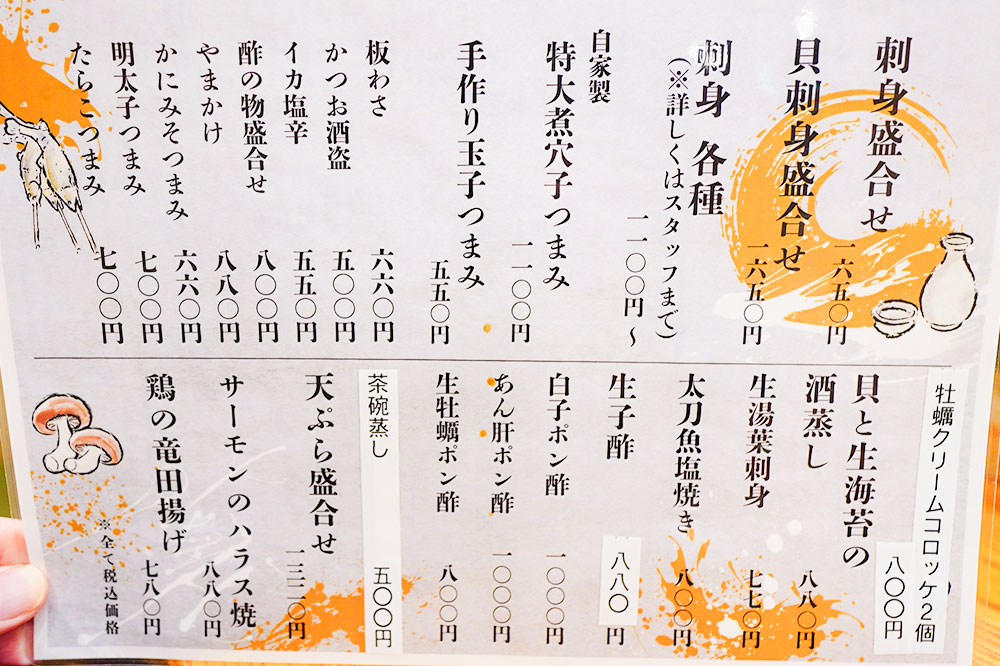 刺身盛合せ
一六五〇円
貝刺身盛合せ
一六五〇円
刺身 各種
(※詳しくはスタッフまで)
一一〇〇円～
自家製
特大煮穴子つまみ
一一〇〇円
手作り玉子つまみ
五五〇円
板わさ
六六〇円
かつお酒盗
五〇〇円
イカ塩辛
五五〇円
酢の物盛合せ
八〇〇円
やまかけ
八八〇円
かにみそつまみ
六六〇円
明太子つまみ
七〇〇円
たらこつまみ
七〇〇円
牡蠣クリームコロッケ2個
八〇〇円
貝と生海苔の
酒蒸し
八八〇円
生湯葉刺身
七七〇円
太刀魚塩焼き
八〇〇円
生子酢
八八〇円
白子ポン酢
一〇〇〇円
あん肝ポン酢
一〇〇〇円
生牡蠣ポン酢
八〇〇円
茶碗蒸し
五〇〇円
天ぷら盛合せ
一三二〇円
サーモンのハラス焼
八八〇円
鶏の竜田揚げ
七八〇円
※全て税込価格